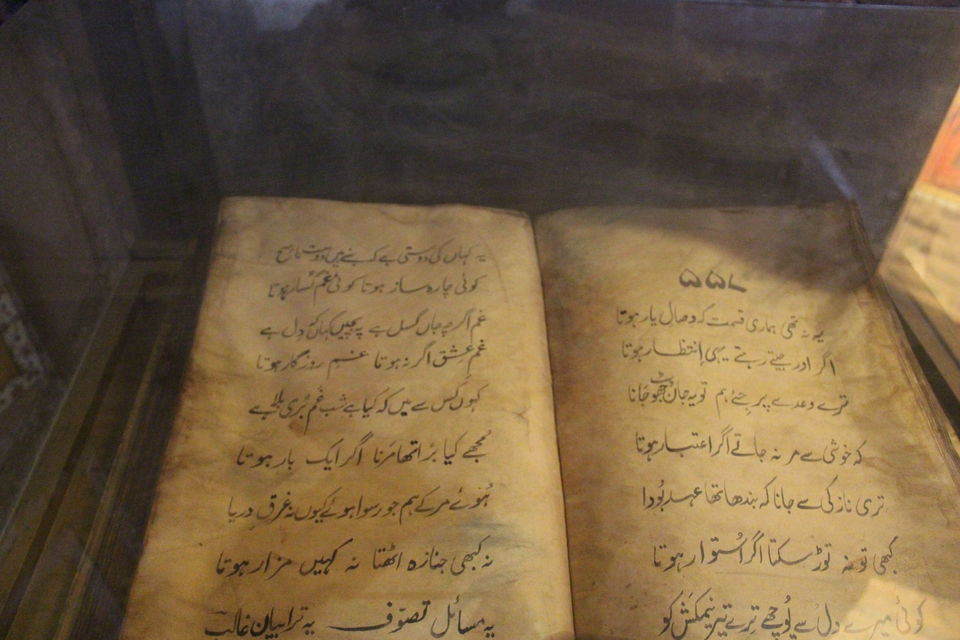 یہ نہ تھی ہماری قسمت کہ وصال یار ہوتا
اگر اور جیتے رہتے یہی اِنتظار ہوتا
ترے وعدے پر جئے ہم تو یہ جان جھوٹ جانا
کہ خوشی سے مر نہ جاتے اگر اعتبار ہوتا
تری نازکی سے جانا کہ بندھا تھا عہد بُودا
کبھی تو نہ توڑ سکتا اگر اُستوار ہوتا
کوئی میرے دل سے پُوچھے ترے تیر نیمکش کو
یہ کہاں کی دوستی ہے کہ بنے ہیں دوست ناصح
کوئی چارہ ساز ہوتا کوئی غم گسار ہوتا
غم اگرچہ جاں گسل ہے پہ بچیں کہاں کہ دل ہے
غمِ عشق اگر نہ ہوتا غمِ روزگار ہوتا
کہوں کس سے میں کہ کیا ہے شب غم بُری بلا ہے
مُجھے کیا بُرا تھا مَرنا اگر ایک بار ہوتا
ہُوئے مر کے ہم جو رسوا ہوئے کیوں نہ غرق دریا
نہ کبھی جنازہ اٹھتا نہ کہیں مزار ہوتا
یہ مسائل تصوّف یہ ترا بیان غالب